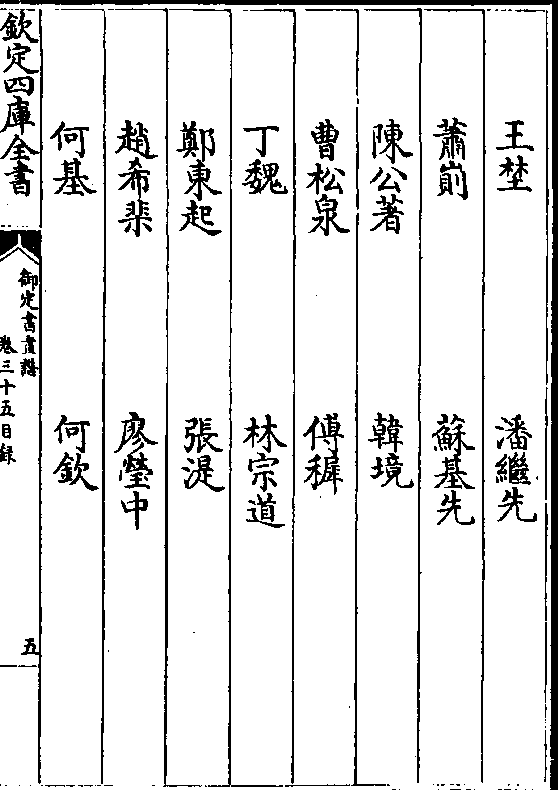 王埜　潘繼先
蕭崱　蘇基先
陳公著　韓境
曹松泉　傅穉
丁魏　林宗道
鄭東起　張湜
趙希棐　廖瑩中
何基　何欽
欽定四庫全書
御定書畫譜
卷三十五目録
五